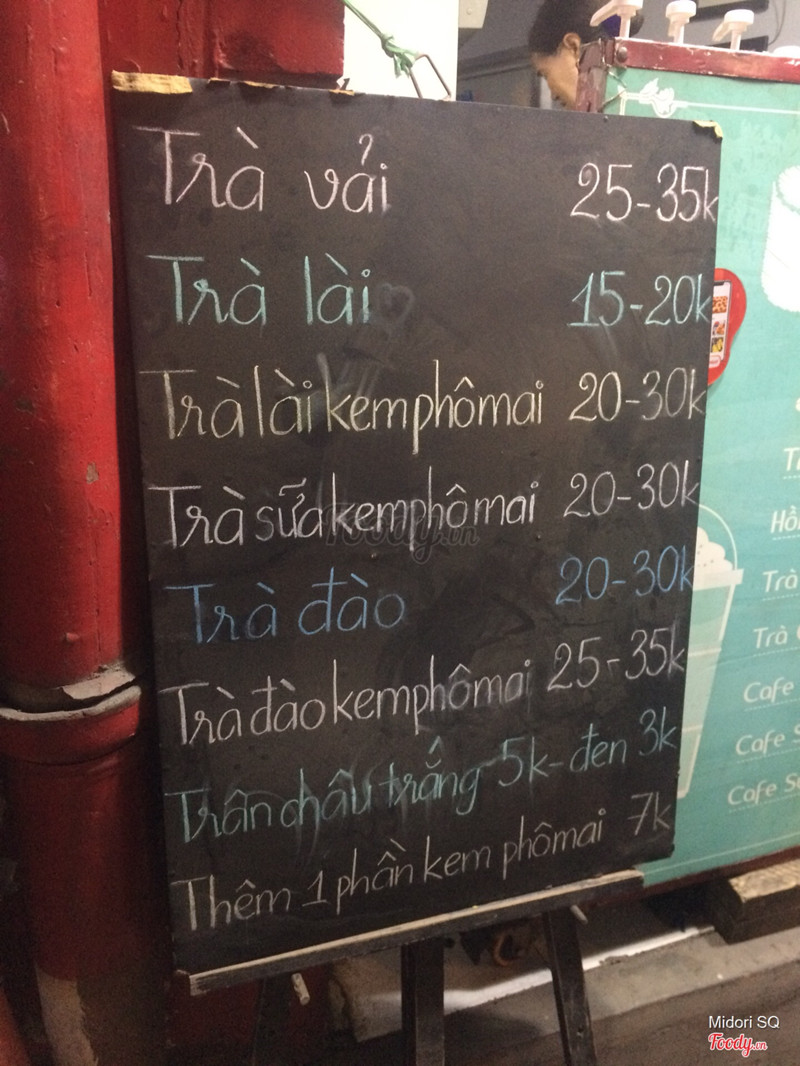 Trà vải 25-35k
Trà lài 15-20k
Trà lài kem phô mai 20-30k
Trà sữa kem phô mai 20-30k
Trà đào 20-30k
Trà đào kem phô mai 25-35k
Trân châu trắng 5k - đen 3k
Thêm 1 phần kem phô mai 7k
Foody.vn
Hồ
Trà
Trà
Cafe
Cafe S
Cafe S
Midori SQ
Foody.vn